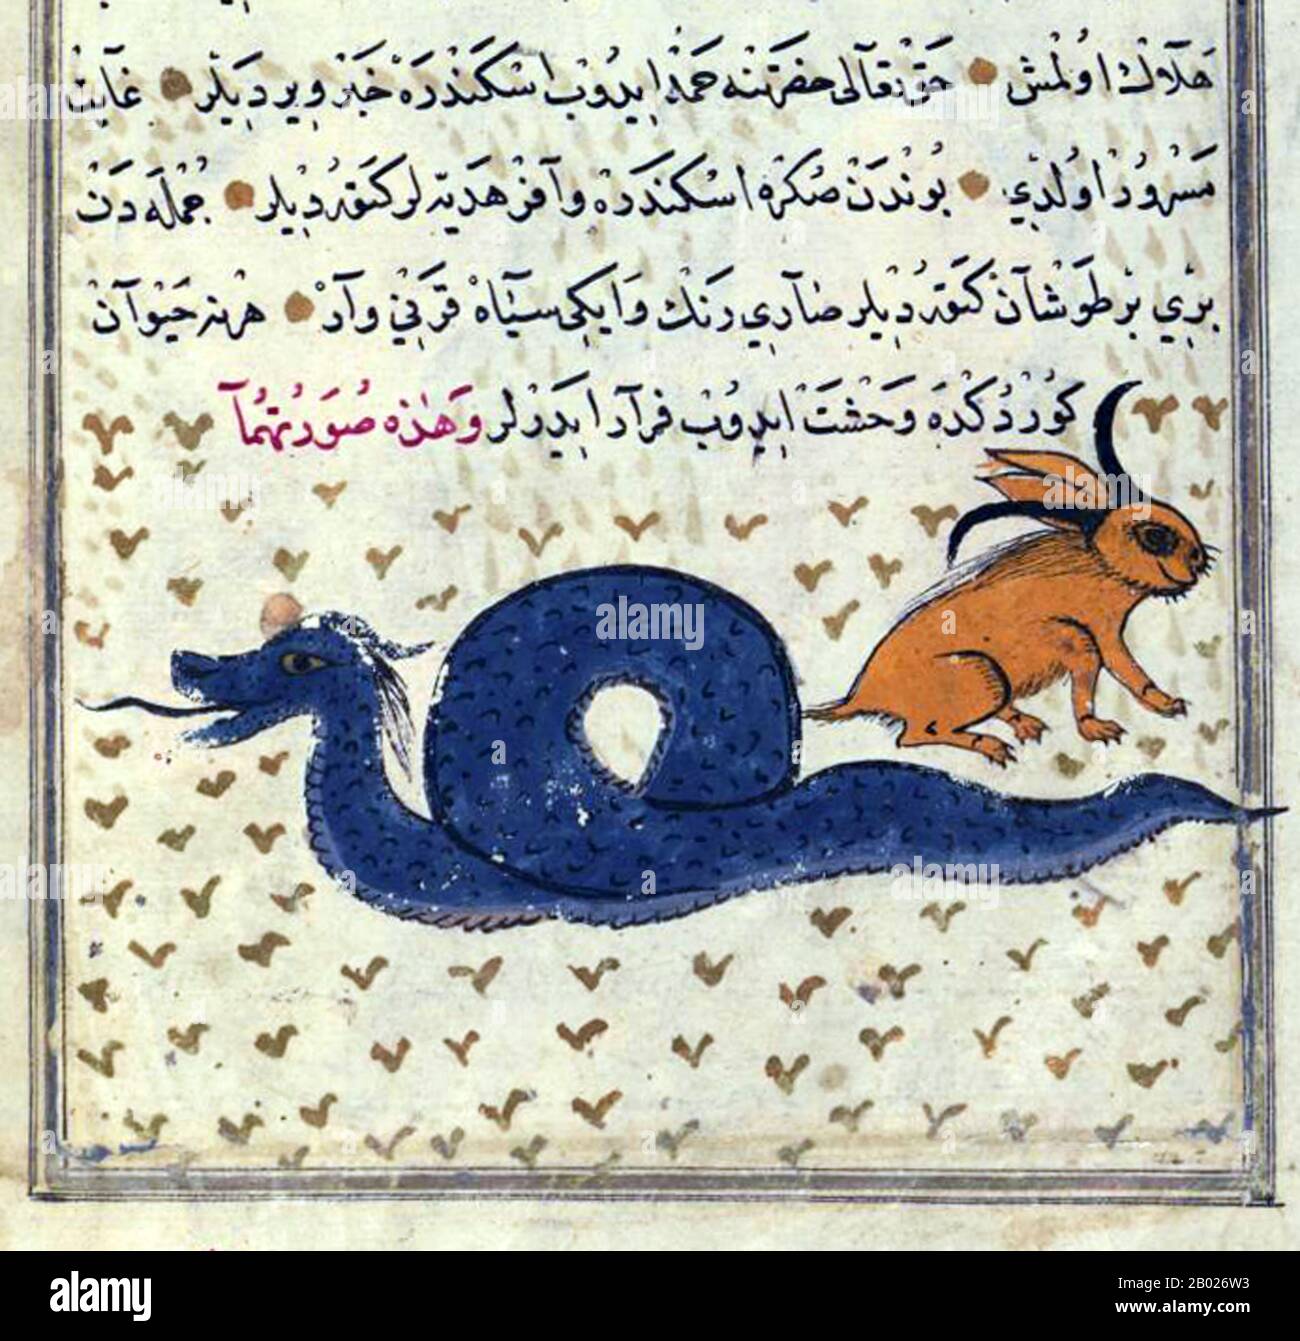 هلاك اولمش • حق تعالى حضرتنه حمد ايدوب اسكندره خبر ويرديلر • غايت
مسرور اولدي • بوندن صكره اسكندره وآفر هديه لر كتورديلر • جمله دن
بري بر طوشان كتورديلر صاري رنك وايكي سياه قرني وار • هر نه حيوان
كوردكده وحشت ايدوب فرار ايدرلر وهذه صورتهما
alamy
Image ID: 2B026W3
www.alamy.com